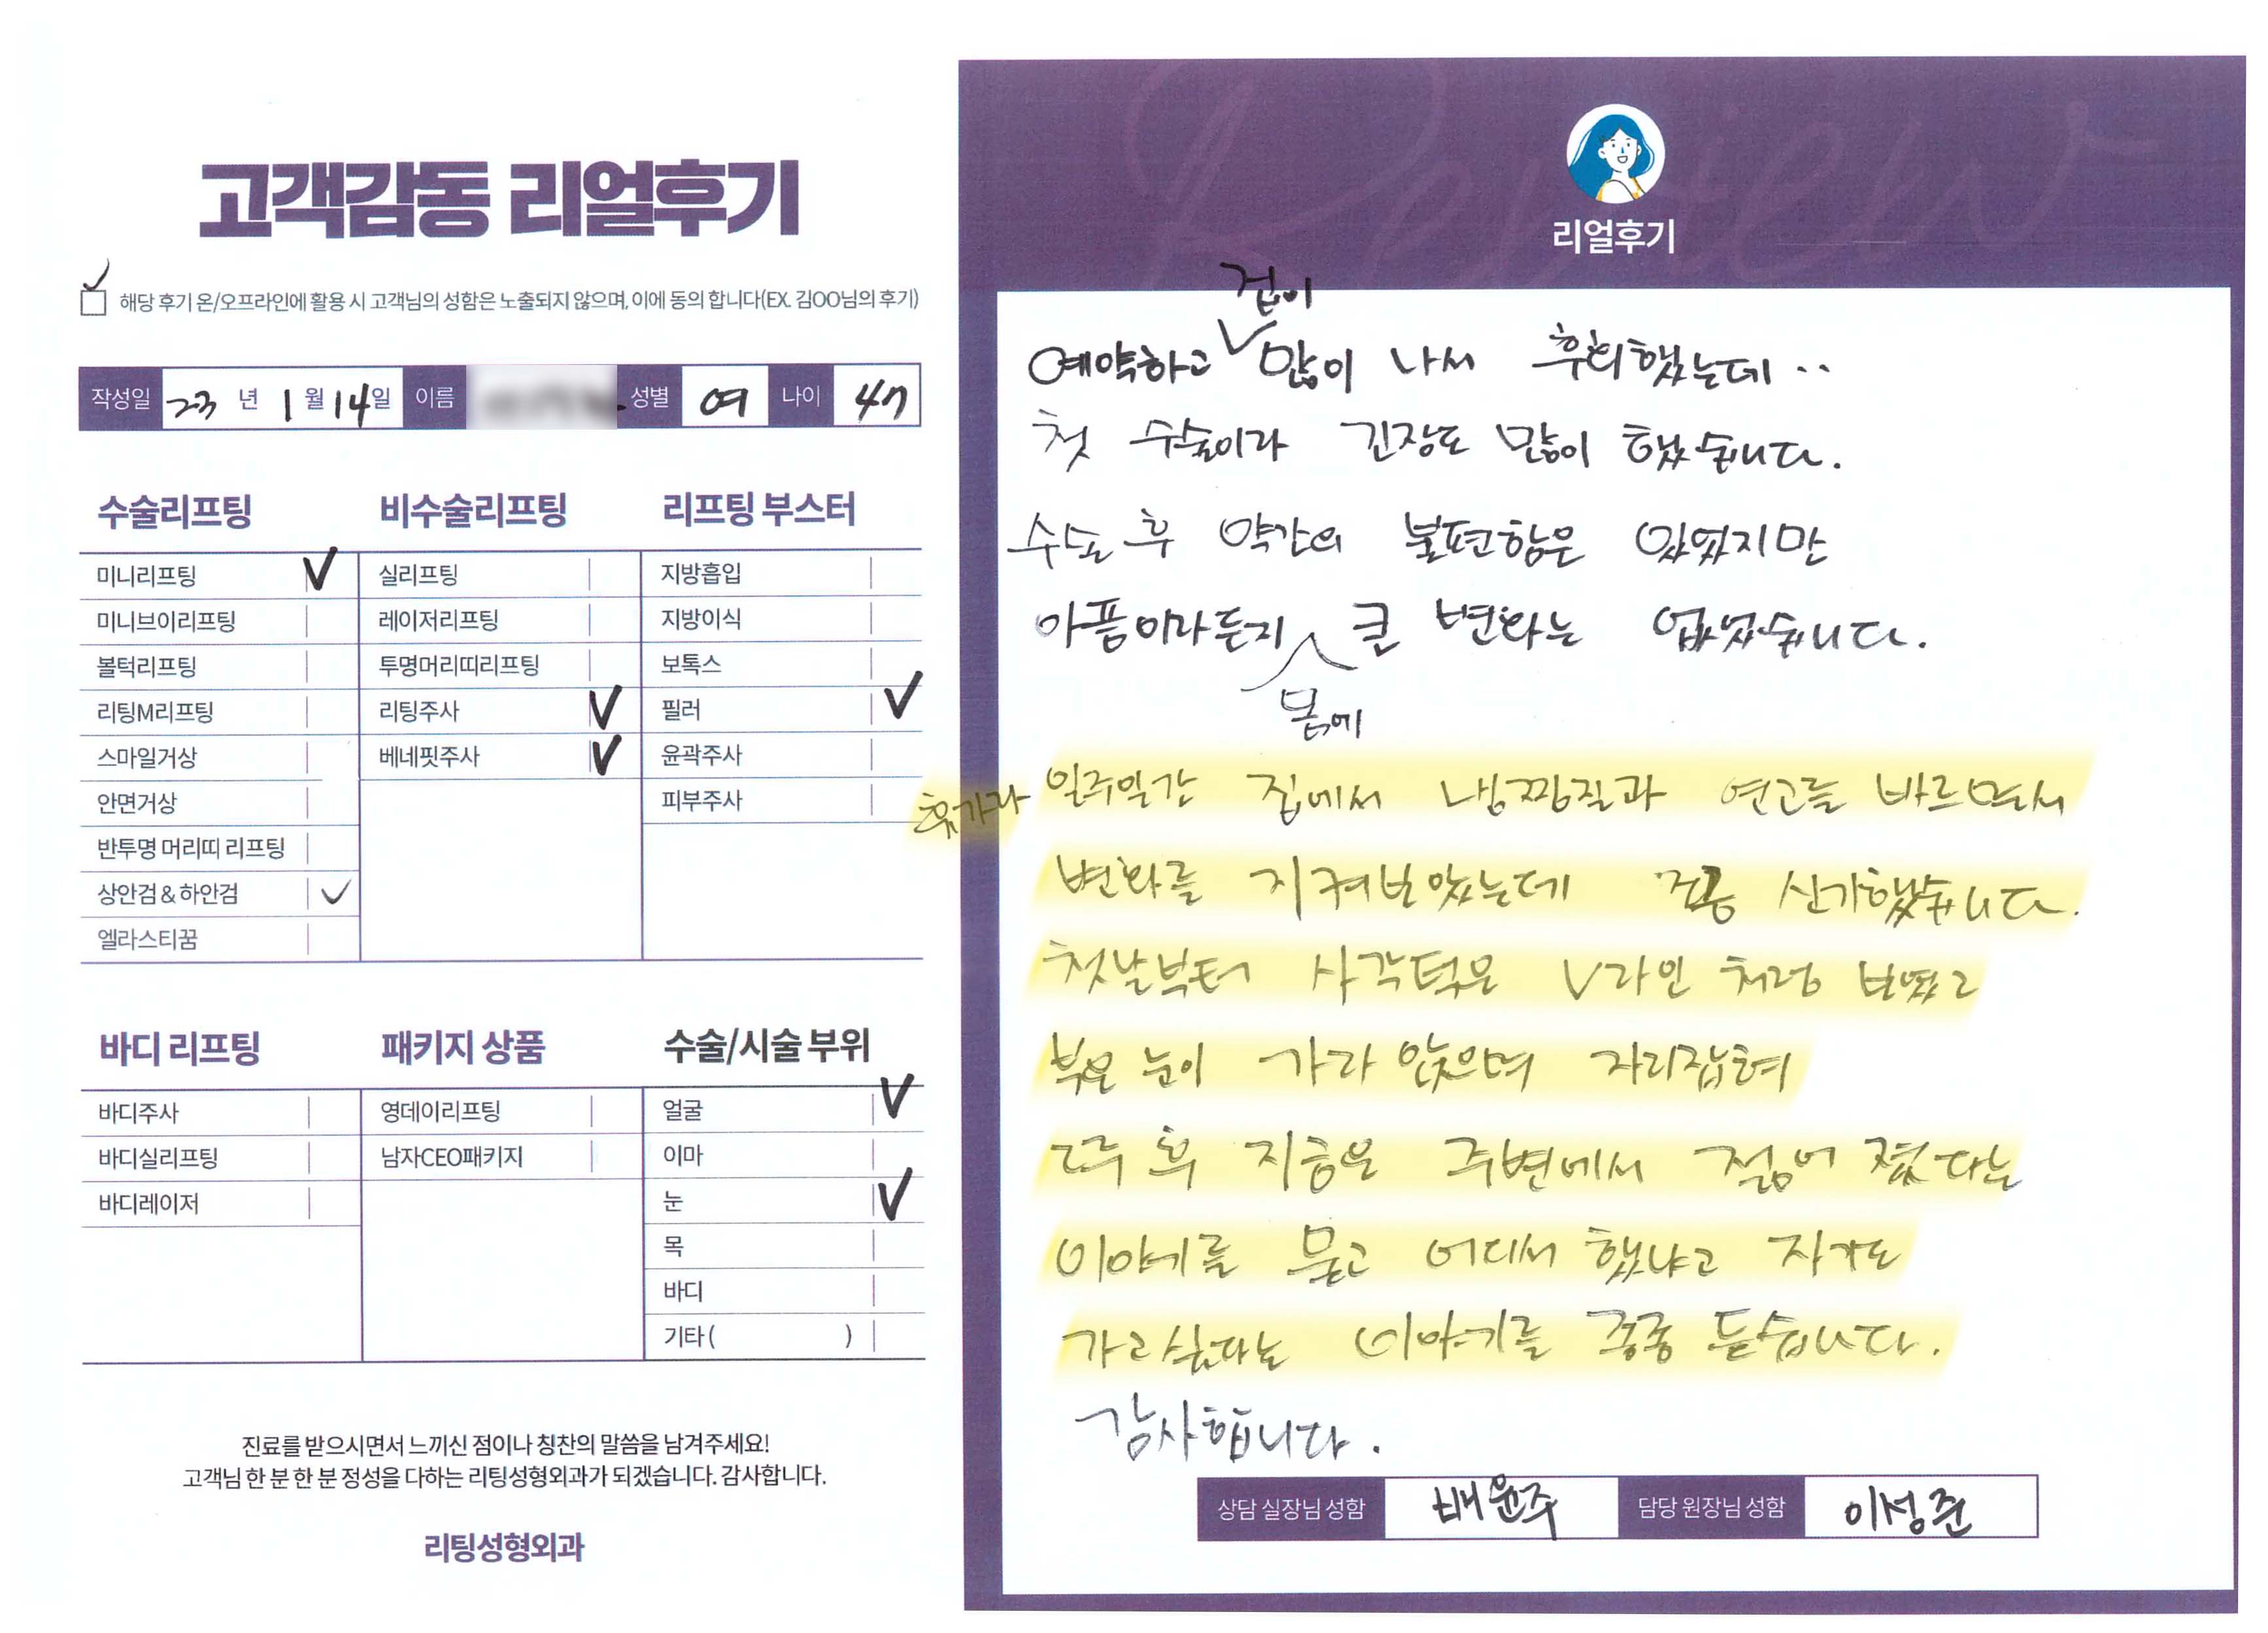 고객감동 리얼후기
해당 후기 온/오프라인에 활용 시 고객님의 성함은 노출되지 않으며, 이에 동의 합니다(EX. 김OO님의 후기)
작성일 23 년 1 월 14 일 이름 성별 여 나이 47
수술리프팅
미니리프팅
미니브이리프팅
볼턱리프팅
리팅M리프팅
스마일거상
안면거상
반투명 머리띠 리프팅
상안검 & 하안검
엘라스티꿈
비수술리프팅
실리프팅
레이저리프팅
투명머리띠리프팅
리팅주사
베네핏주사
리프팅 부스터
지방흡입
지방이식
보톡스
필러
윤곽주사
피부주사
바디 리프팅
바디주사
바디실리프팅
바디레이저
패키지 상품
영데이리프팅
남자CEO패키지
수술/시술 부위
얼굴
이마
눈
목
바디
기타 ( )
진료를 받으시면서 느끼신 점이나 칭찬의 말씀을 남겨주세요!
고객님 한 분 한 분 정성을 다하는 리팅성형외과가 되겠습니다. 감사합니다.
리팅성형외과
Review
리얼후기
예약하고 겁이 많이 나서 후회했는데..
첫 수술이라 긴장도 많이 했습니다.
수술 후 약간의 불편함은 있었지만
아픔이라든지 몸에 큰 변화는 없었습니다.
휴가라 일주일간 집에서 냉찜질과 연고를 바르면서
변화를 지켜보았는데 신기했습니다.
첫날부터 사각턱은 V라인 처럼 보였고
부은 눈이 가라 앉으며 자리잡혀
2주 후 지금은 주변에서 젊어 졌다는
이야기를 듣고 어디서 했냐고 자기도
가고싶다는 이야기를 종종 듣습니다.
감사합니다.
상담 실장님 성함 배윤주 담당 원장님 성함 이성준